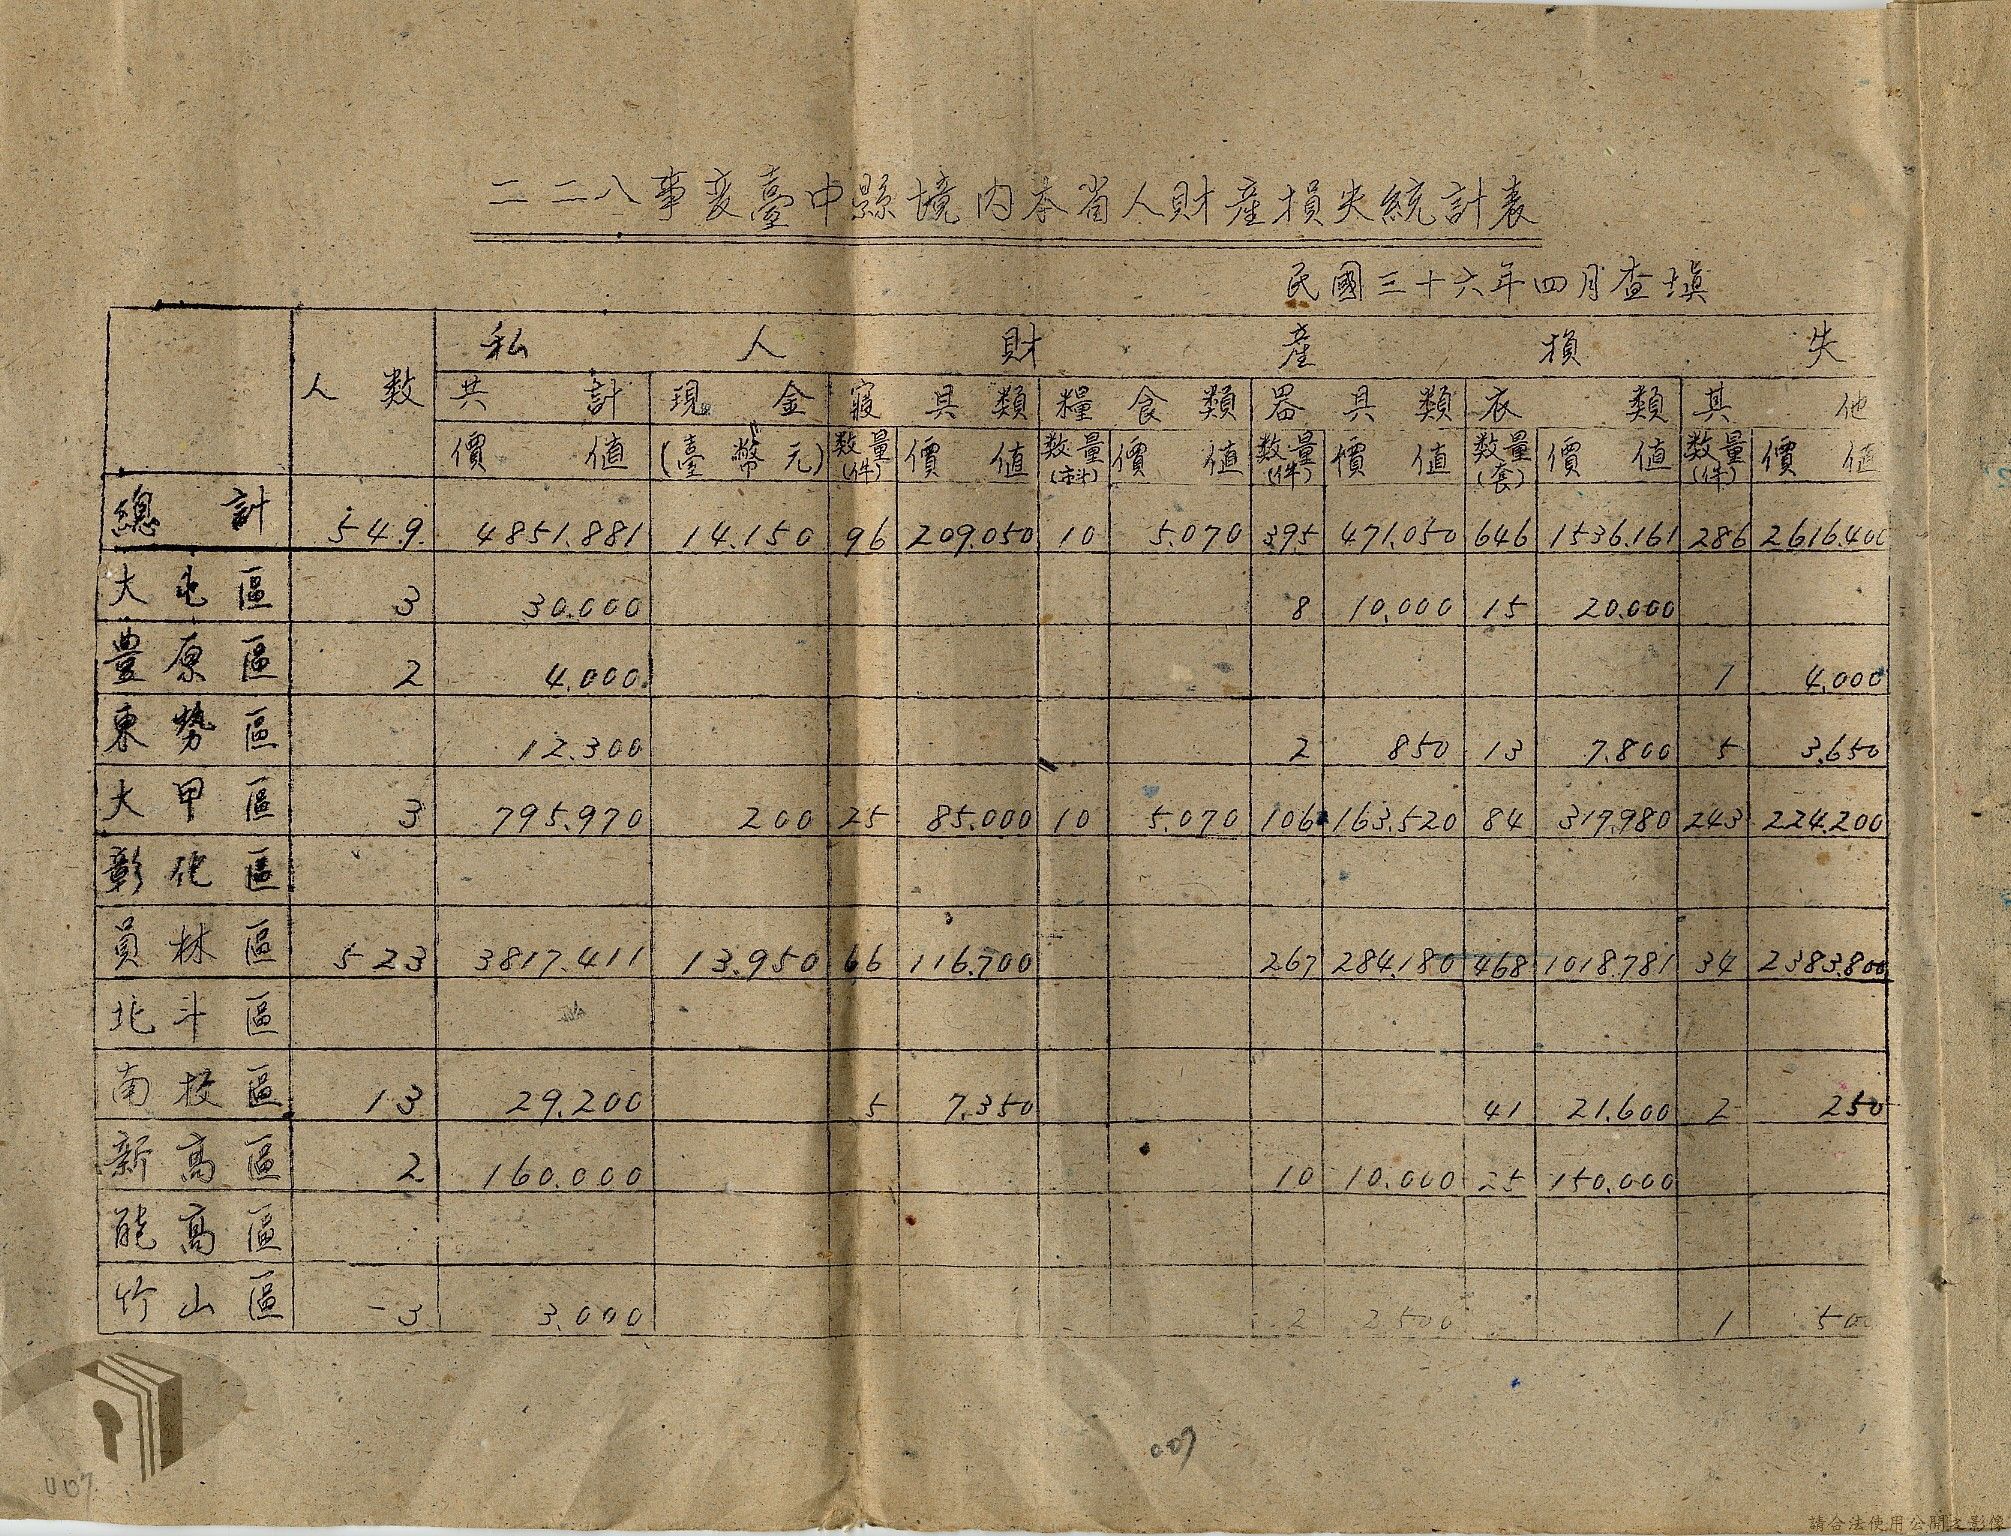 二二八事变臺中縣境内本省人財產損失統計表
民國三十六年四月查填
人数 私人財產損失
共計 現金 寢具類 糧食類 器具類 衣類 其他
價值 (臺幣元) 数量(件) 價值 数量 價值 数量(件) 價值 数量(套) 價值 数量(件) 價值
總計 549. 4851.881 14.150 96 209.050 10 5.070 395 471.050 646 1536.161 286 2616.400
大屯區 3 30.000 8 10.000 15 20.000
豊原區 2 4.000 1 4.000
東勢區 12.300 2 850 13 7.800 5 3.650
大甲區 3 795.970 200 25 85.000 10 5.070 106 163.520 84 317.980 243 224.200
彰化區
員林區 523 3817.411 13.950 66 116.700 267 284.180 468 1018.781 34 2383.800
北斗區
南投區 13 29.200 5 7.350 41 21.600 2 250
新高區 2 160.000 10 10.000 25 150.000
能高區
竹山區 3 3.000 2 2500 1 500
007
007
請合法使用公開之影像